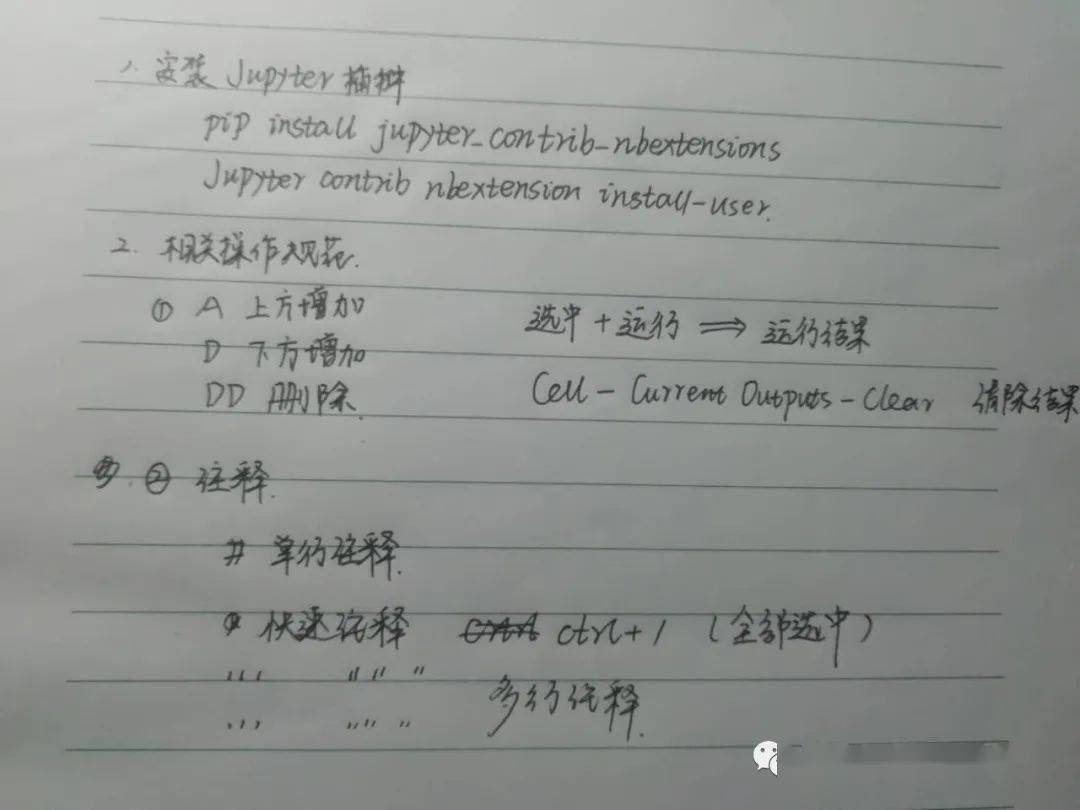 1. 安装 Jupyter 插件
pip install jupyter_contrib_nbextensions
Jupyter contrib nbextension install-user.
2. 相关操作规范.
① A 上方增加 选中 + 运行 ⟹ 运行结果
D 下方增加
DD 删除. Cell - Current Outputs - Clear 清除结果
② 注释.
# 单行注释.
快速注释 ctrl+1 (全部选中)
''' """
多行注释.
''' """